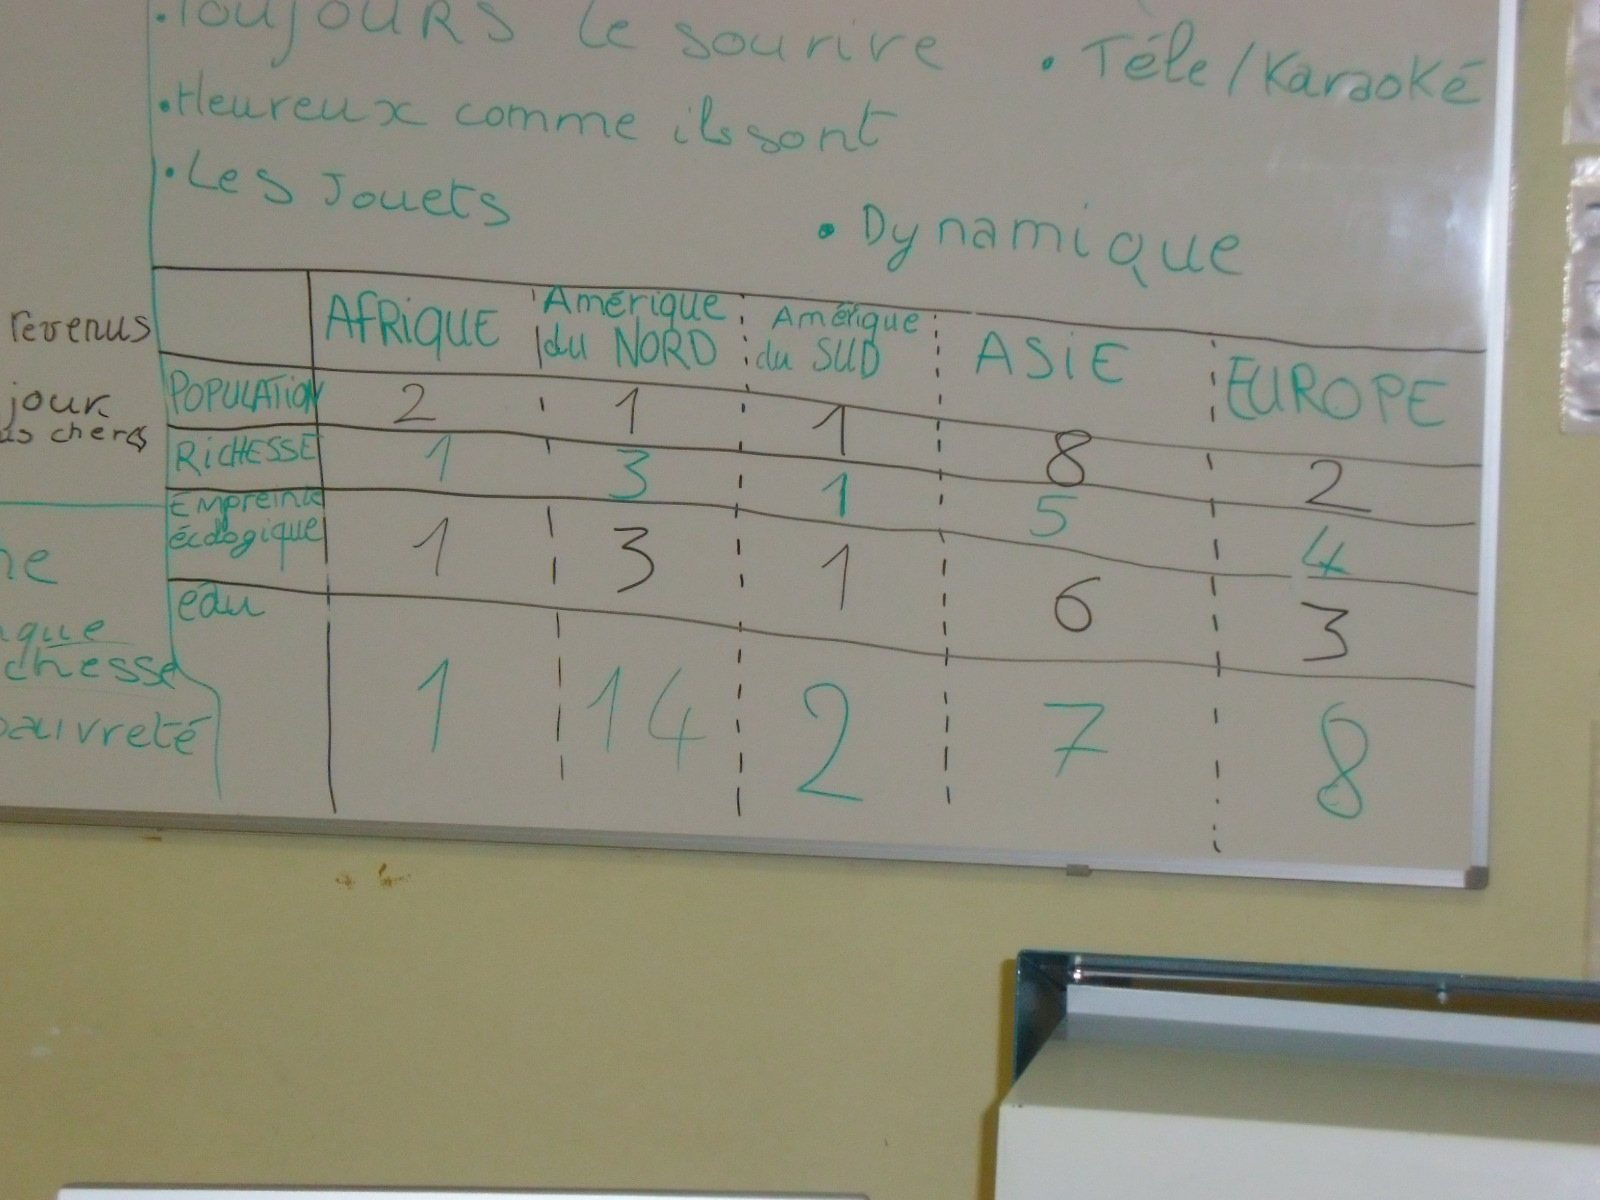 •TOUJOURS le sourire
• Téle/Karaoké
•Heureux comme ils sont
•Les Jouets
• Dynamique
revenus
jour
chers
chesse
pauvreté
AFRIQUE Amérique du NORD Amérique du SUD ASIE EUROPE
POPULATION 2 1 1 8 2
RICHESSE 1 3 1 5 4
Empreinte écologique 1 3 1 6 3
edu 1 14 2 7 8